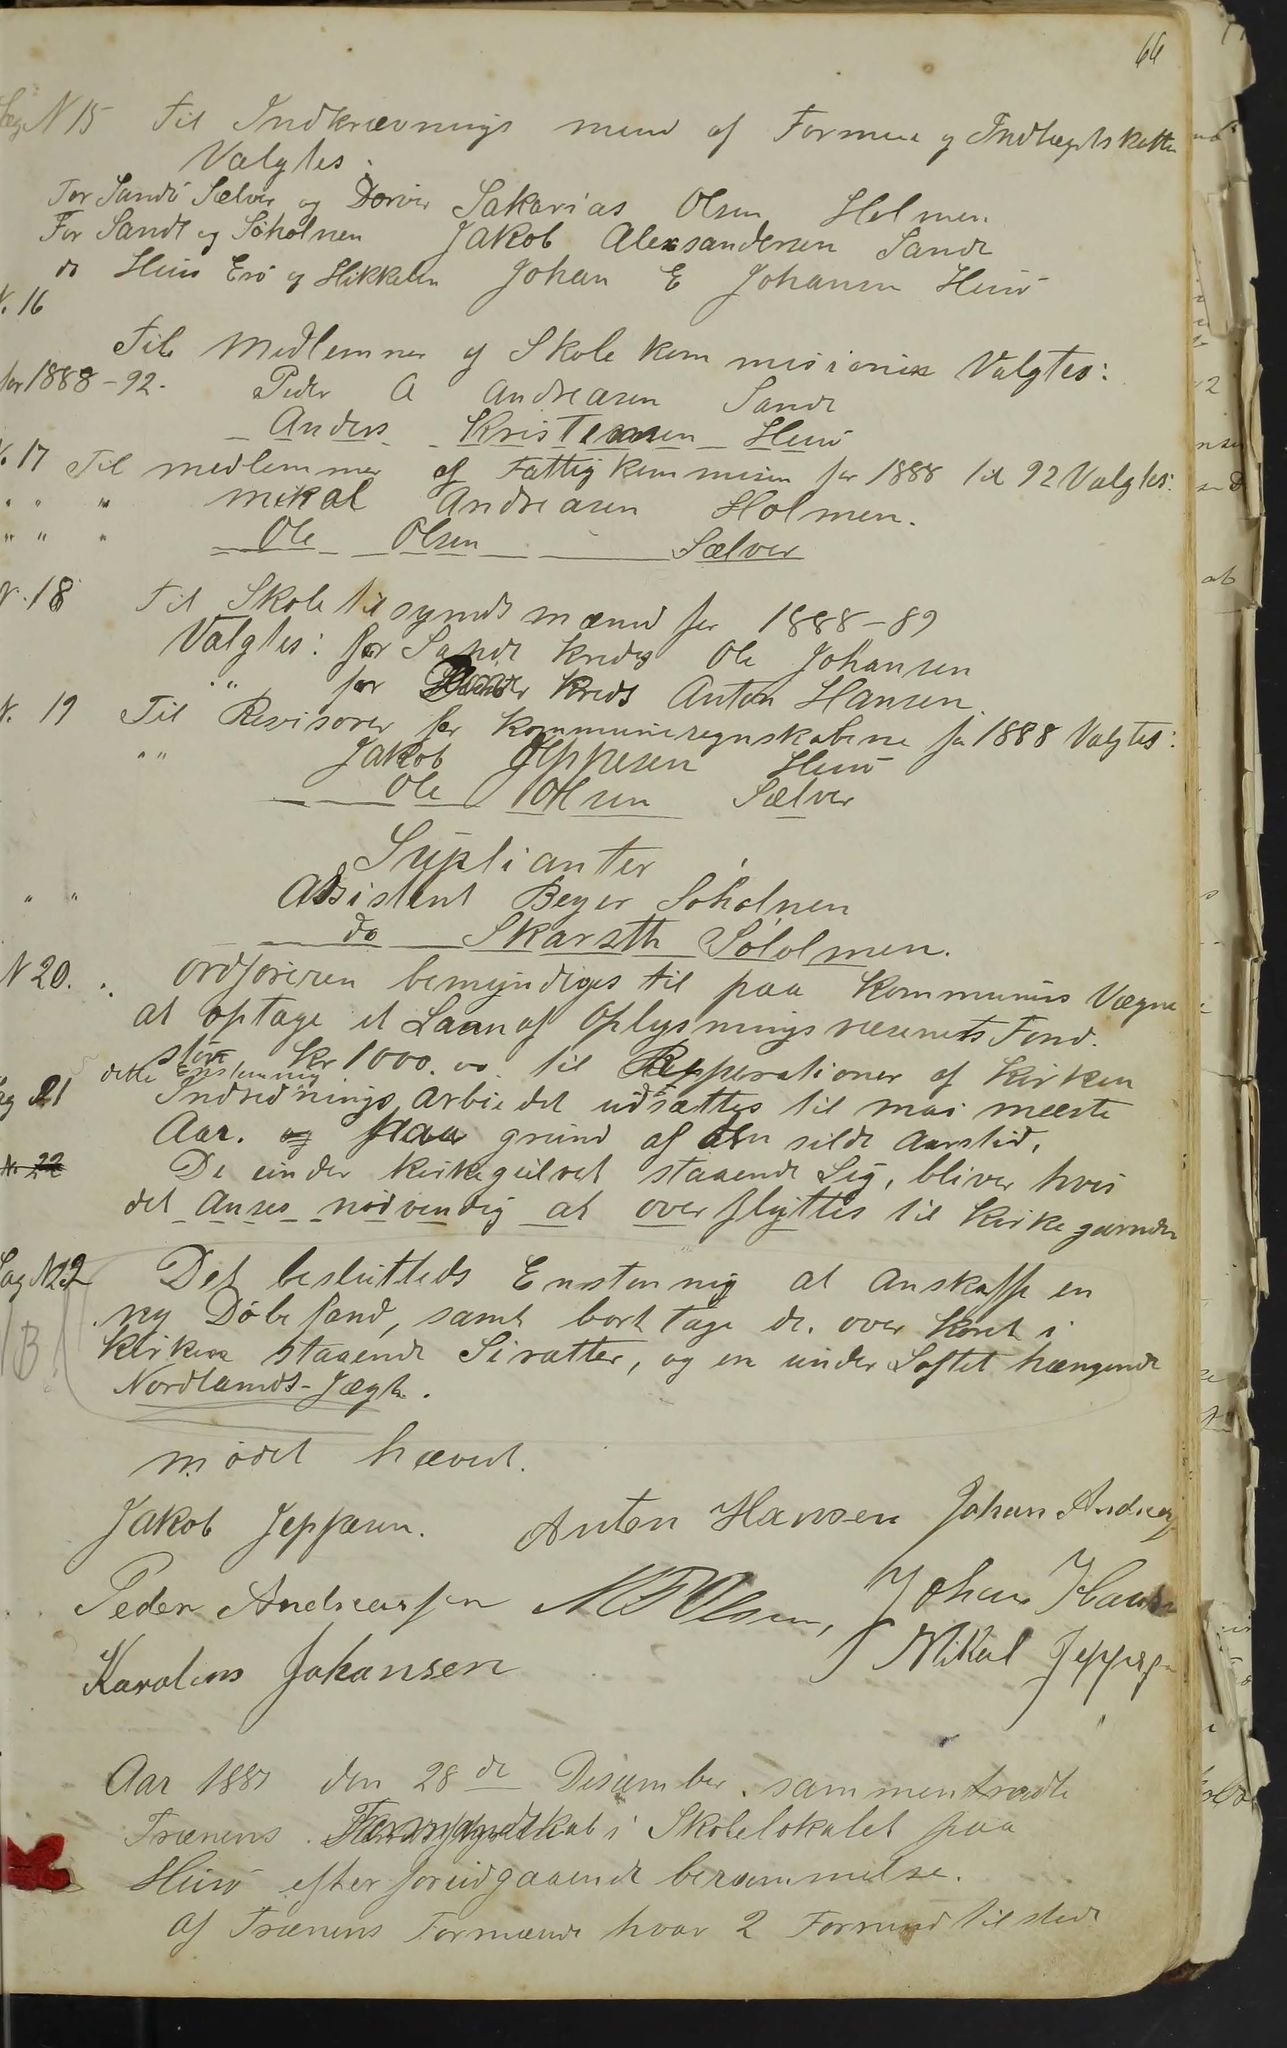 66
Sag N 15 Til Indkrævnings mend af Formue og Indtægtskatten
Valgtes:
For Sandö Selver og Dørvær Sakarias Olsen Holmen
For Sandt og Söholmen Jakob Alexsandersen Sandt
do Husö Esö og Hikkelen Johan E Johansen Husö
N. 16
Til Medlemmer af Skole kommisionen Valgtes:
for 1888-92. Peder A Andreasen Sandt
Anders Kristensen Husö
N. 17 Til medlemmer af Fattigkommision for 1888 til 92 Valgtes:
" " " Mikal Andreasen Holmen.
" " " Ole Olsen Sælver
N. 18 Til Skole tilsynds mænd for 1888-89
Valgtes: for Sandt Kreds Ole Johansen
" for Kreds Anton Hansen.
N. 19 Til Revisorer for Kommuneregnskabene for 1888 Valgtes:
" " Jakob Jeppesen Husö
Ole Olsen Sælver
Suplianter
" " Assistent Beyer Söholmen
do Skarseth Söholmen.
N 20. Ordföreren bemyndiges til paa Kommunens Vægne
at optage et Laan af Oplysningsvæsenets Fond.
stor Kr 1000.00 til Repperationer af Kirken
dette Enstemmig
Sag 21 Indredningsarbeidet udsættes til mai næste
Aar. og paa grund af den silde Aarstid.
N. 22 De under kirkegulvet staaende Lig, bliver hvis
det Anses nödvendig at overflyttes til Kirkegaarden
Sag N 22 Det beslutteds Enstemmig at anskaffe en
ny Döbefand, samt bort tage de. over Koret i
B Kirken staaende Siratter, og en under Loftet hængende
Nordlands-Jægt.
mödet hævet.
Jakob Jeppesen. Anton Hansen Johan Andreas
Peder Andreassen Olsen, Johan Hansen
Karolius Johansen Mikal Jeppesen
Aar 1887 den 28de Desember sammentraadte
Trænens Formandskab i Skolelokalet paa
Husö efter forudgaaende berammelse.
Af Trænens Formænde hvar 2 Formend tilstede